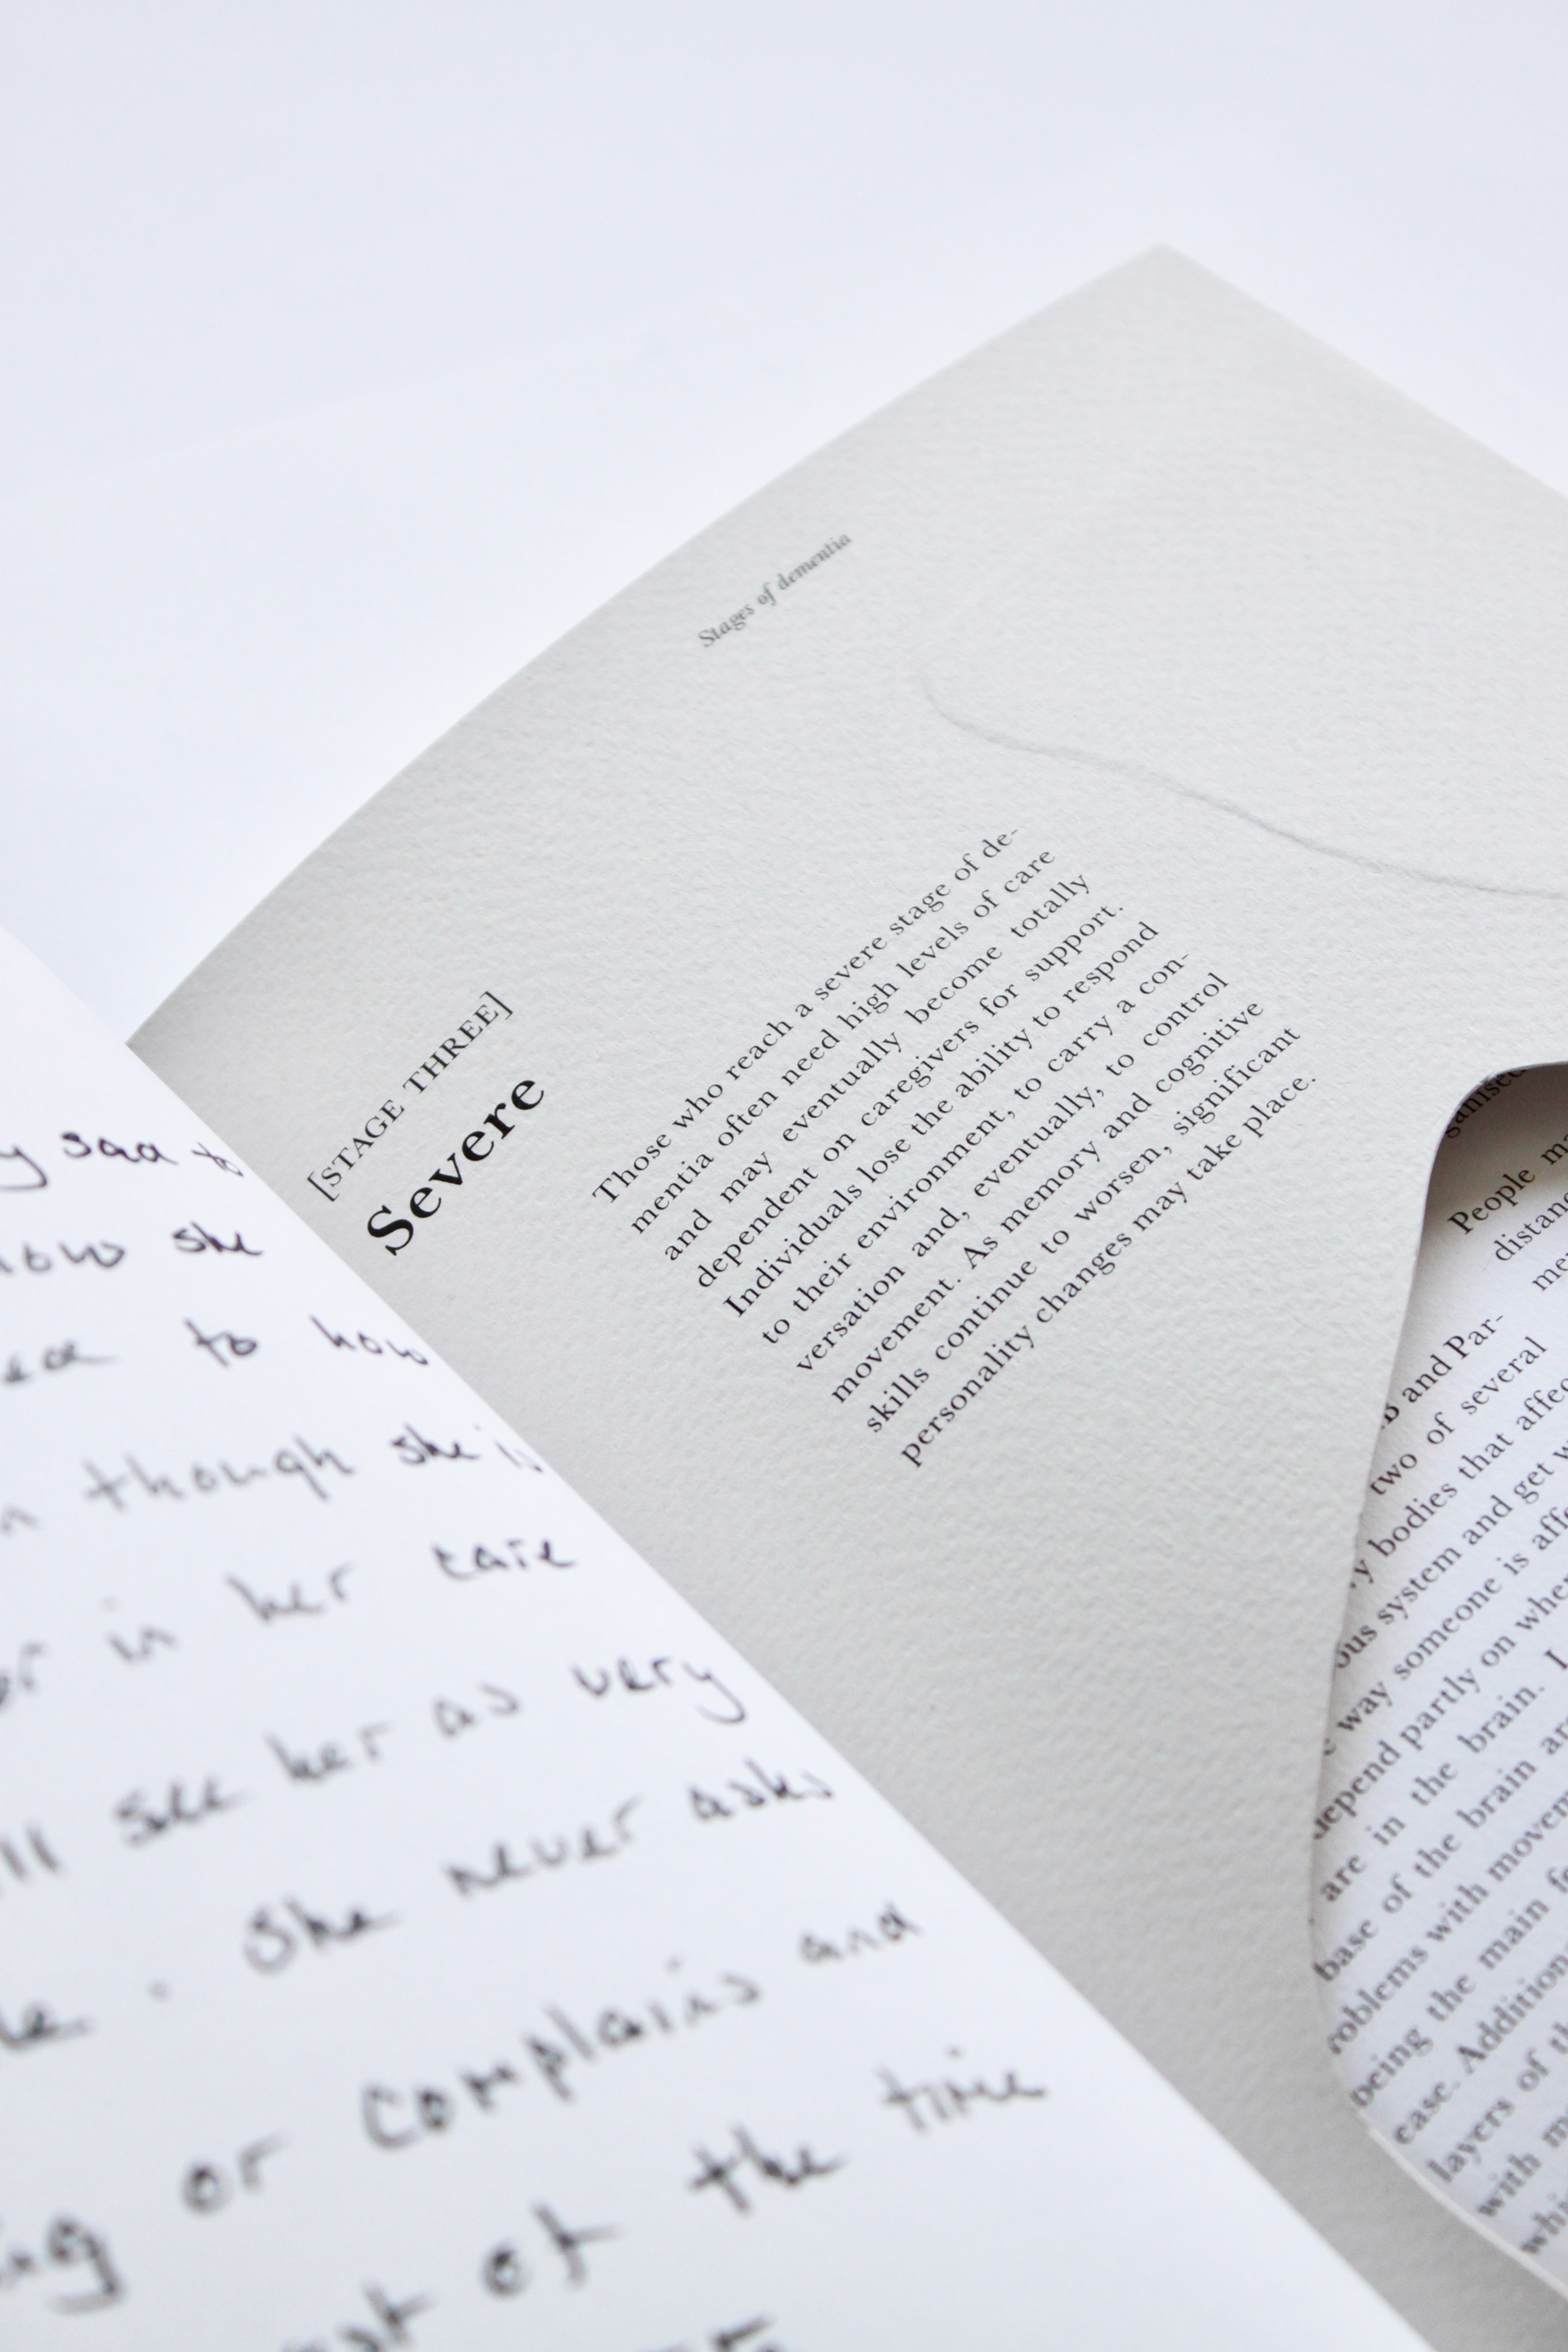 y sad to
how she
to how
though she is
in her care
see her as very
She never asks
or complains and
of the time
Stages of dementia
[STAGE THREE]
Severe
Those who reach a severe stage of de-
mentia often need high levels of care
and may eventually become totally
dependent on caregivers for support.
Individuals lose the ability to respond
to their environment, to carry a con-
versation and, eventually, to control
movement. As memory and cognitive
skills continue to worsen, significant
personality changes may take place.
People
and Par-
two of several
bodies that
ous system and get
way someone is
depend partly on
are in the brain. I
base of the brain
roblems with
being the main
ease.
layers of
with